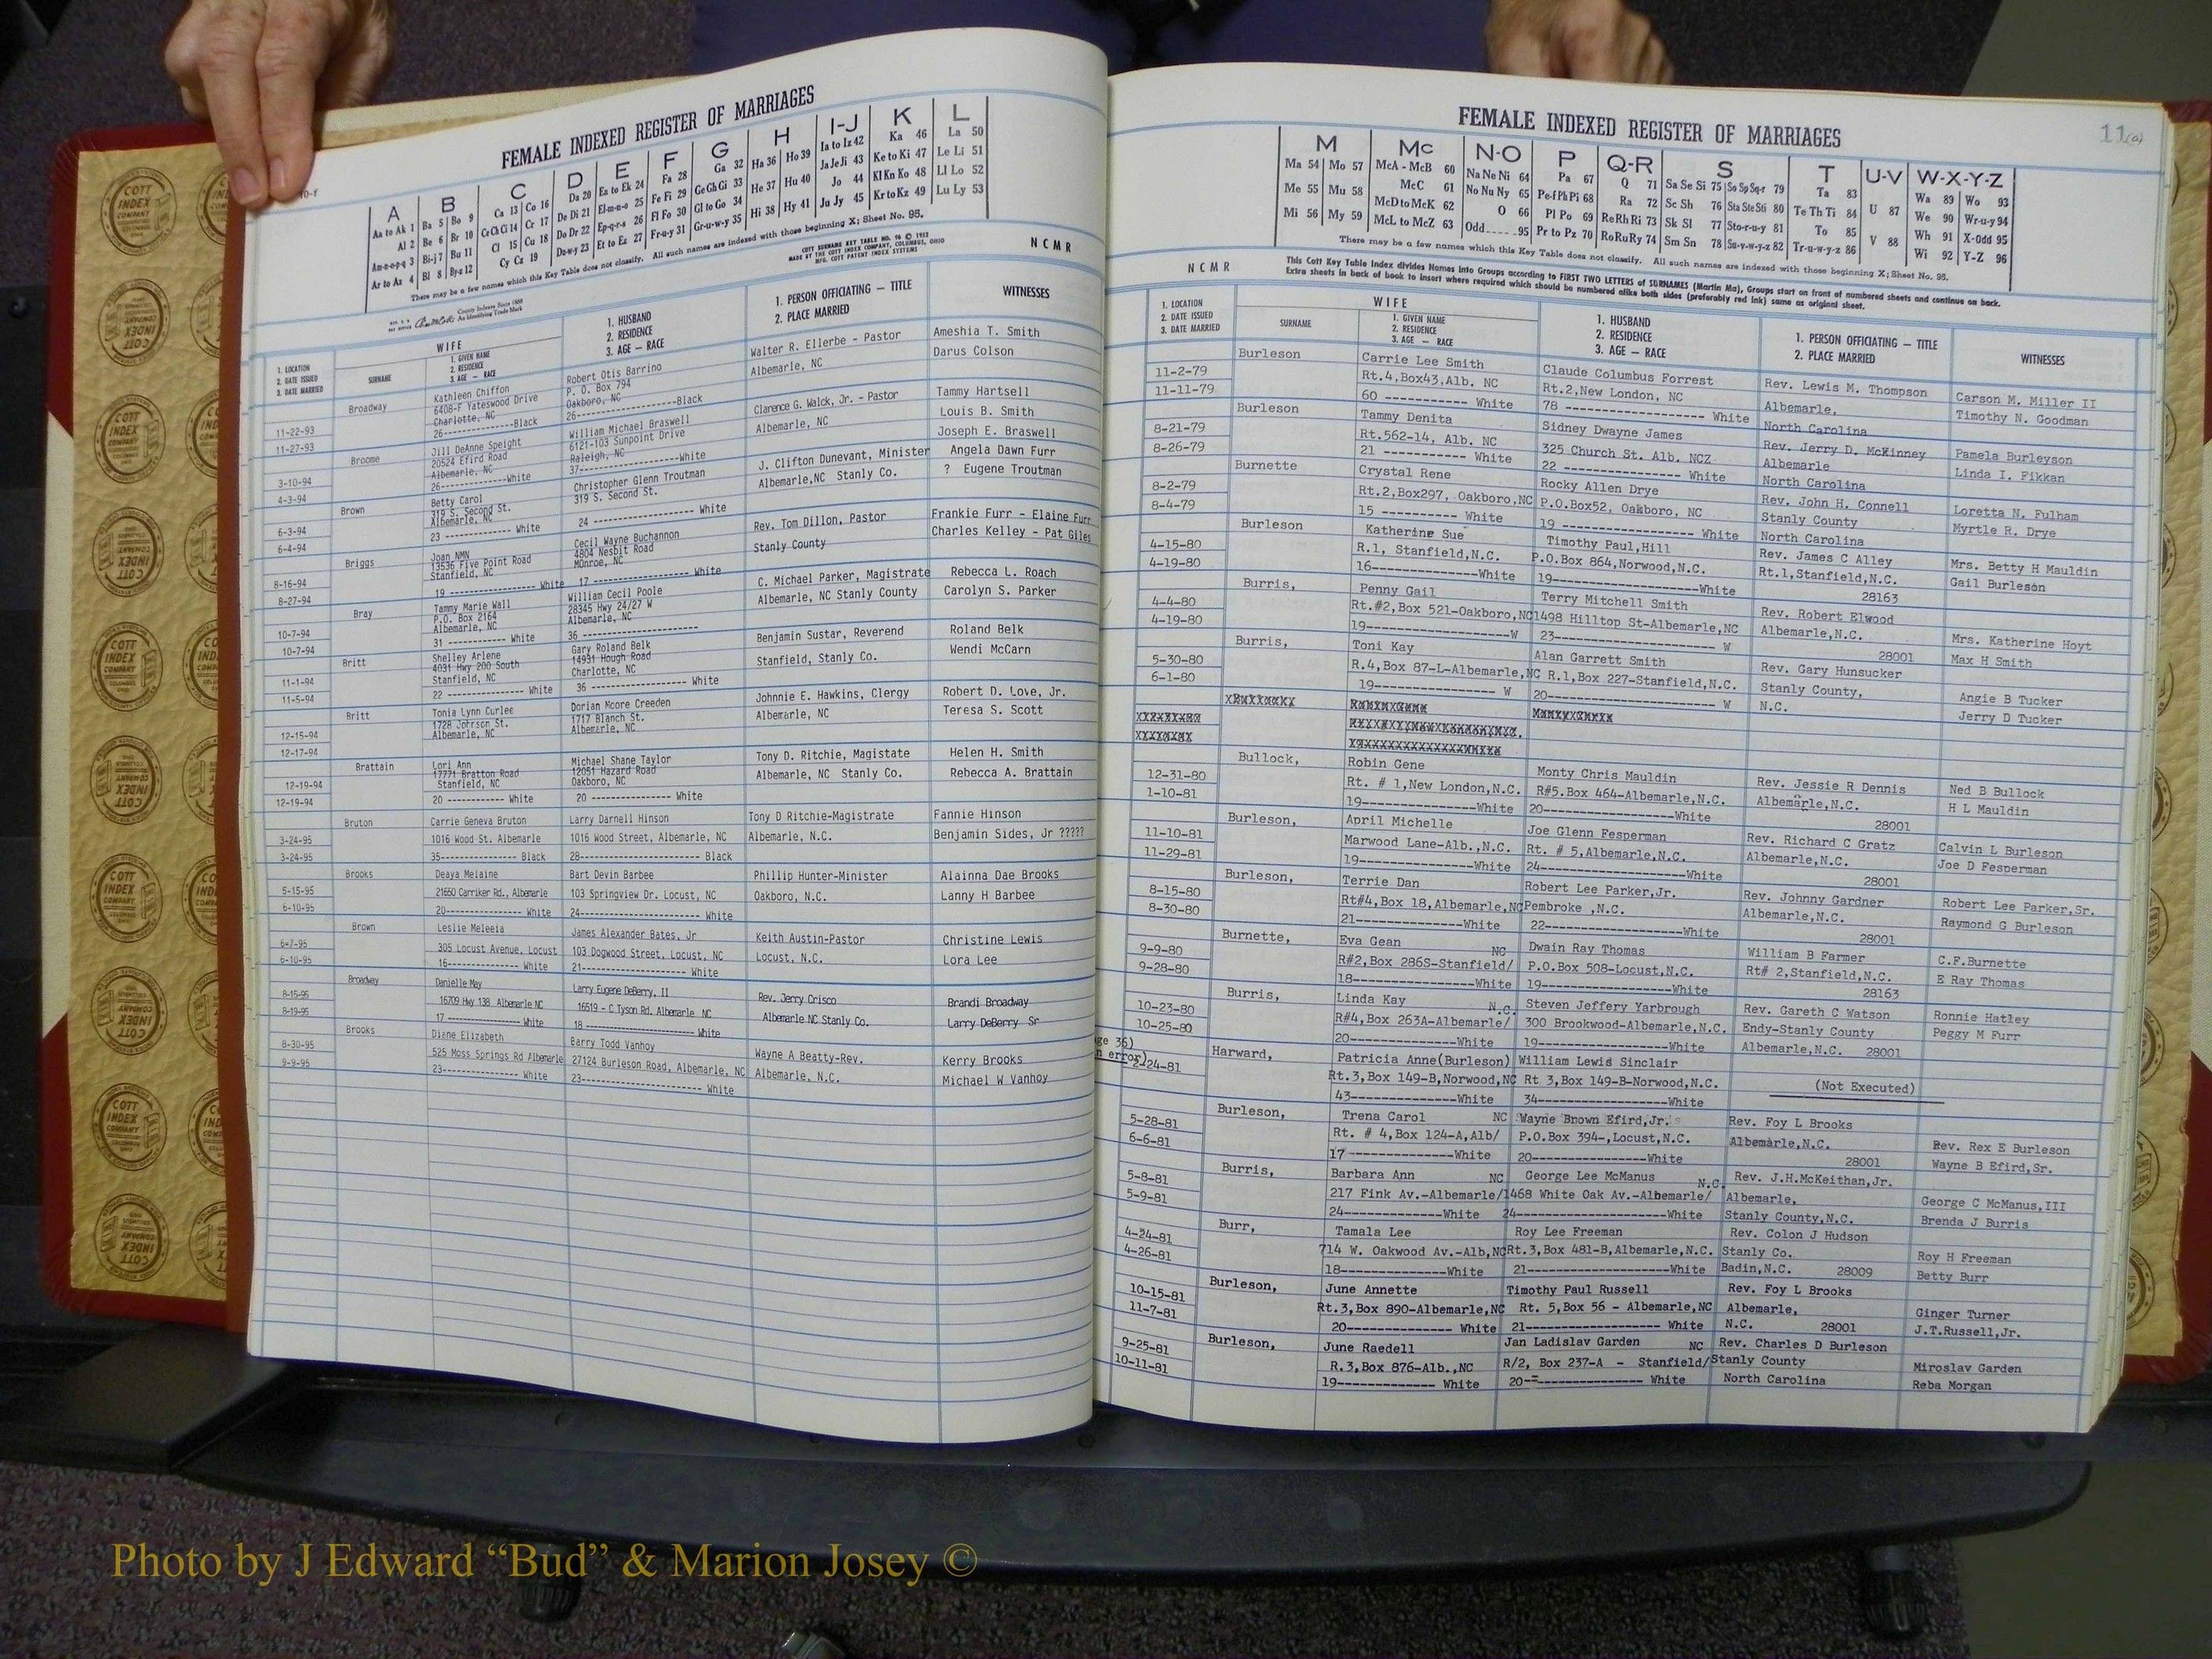 FEMALE INDEXED REGISTER OF MARRIAGES
A B C D E F G H I-J K L
Aa to Ak 1 Ba 5 Bo 9 Ca 13 Co 16 Da 20 Ea to Ek 24 Fa 28 Ga 32 Ha 36 Ho 39 Ia to Iz 42 Ka 46 La 50
Al 2 Be 6 Br 10 Ce Ch Ci 14 Cr 17 De Di 21 El-m-n-o 25 Fe Fi 29 Ge Gh Gi 33 He 37 Hu 40 Ja Je Ji 43 Ke to Ki 47 Le Li 51
Am-n-o-p-q 3 Bi-j 7 Bu 11 Cl 15 Cu 18 Do Dr 22 Ep-q-r-s 26 Fl Fo 30 Gl to Go 34 Hi 38 Hy 41 Jo 44 Kl Kn Ko 48 Ll Lo 52
Ar to Az 4 Bl 8 By-z 12 Cy Cz 19 Du-w-y 23 Et to Ez 27 Fr-u-y 31 Gr-u-w-y 35 Ju Jy 45 Kr to Kz 49 Lu Ly 53
There may be a few names which this Key Table does not classify. All such names are indexed with those beginning X; Sheet No. 95.
COTT SURNAME KEY TABLE NO. 96 © 1953
MADE BY THE COTT INDEX COMPANY, COLUMBUS, OHIO
MFG. COTT PATENT INDEX SYSTEMS
N C M R
County Indexes Since 1888
An Identifying Trade Mark
1. LOCATION
2. DATE ISSUED
3. DATE MARRIED
WIFE
SURNAME
1. GIVEN NAME
2. RESIDENCE
3. AGE — RACE
1. HUSBAND
2. RESIDENCE
3. AGE — RACE
1. PERSON OFFICIATING — TITLE
2. PLACE MARRIED
WITNESSES
Broadway Kathleen Chiffon Robert Otis Barrino Walter R. Ellerbe - Pastor Ameshia T. Smith
6408-F Yateswood Drive P. O. Box 794 Albemarle, NC Darus Colson
11-22-93 Charlotte, NC Oakboro, NC
11-27-93 26---Black 26---Black
Broome Jill DeAnne Speight William Michael Braswell Clarence G. Walck, Jr. - Pastor Tammy Hartsell
20524 Efird Road 6121-103 Sunpoint Drive Albemarle, NC Louis B. Smith
3-10-94 Albemarle, NC Raleigh, NC Joseph E. Braswell
4-3-94 26---White 37---White
Brown Betty Carol Christopher Glenn Troutman J. Clifton Dunevant, Minister Angela Dawn Furr
319 S. Second St. 319 S. Second St. Albemarle,NC Stanly Co. ? Eugene Troutman
6-3-94 Albemarle, NC
6-4-94 23 --- White 24 --- White
Briggs Joan NMN Cecil Wayne Buchannon Rev. Tom Dillon, Pastor Frankie Furr - Elaine Furr
13536 Five Point Road 4804 Nesbit Road Stanly County Charles Kelley - Pat Giles
8-16-94 Stanfield, NC MOnroe, NC
8-27-94 19 --- White 17 --- White
Bray Tammy Marie Wall William Cecil Poole C. Michael Parker, Magistrate Rebecca L. Roach
P.O. Box 2164 28345 Hwy 24/27 W Albemarle, NC Stanly County Carolyn S. Parker
10-7-94 Albemarle, NC Albemarle, NC
10-7-94 31 --- White 36 ---
Britt Shelley Arlene Gary Roland Belk Benjamin Sustar, Reverend Roland Belk
4031 Hwy 200 South 14931 Hough Road Stanfield, Stanly Co. Wendi McCarn
11-1-94 Stanfield, NC Charlotte, NC
11-5-94 22 --- White 36 --- White
Britt Tonia Lynn Curlee Dorian Moore Creeden Johnnie E. Hawkins, Clergy Robert D. Love, Jr.
1728 Johrson St. 1717 Blanch St. Albemarle, NC Teresa S. Scott
12-15-94 Albemarle, NC Albemarle, NC
12-17-94
Brattain Lori Ann Michael Shane Taylor Tony D. Ritchie, Magistate Helen H. Smith
17771 Bratton Road 12051 Hazard Road Albemarle, NC Stanly Co. Rebecca A. Brattain
12-19-94 Stanfield, NC Oakboro, NC
12-19-94 20 --- White 20 --- White
Bruton Carrie Geneva Bruton Larry Darnell Hinson Tony D Ritchie-Magistrate Fannie Hinson
3-24-95 1016 Wood St. Albemarle 1016 Wood Street, Albemarle, NC Albemarle, N.C. Benjamin Sides, Jr ?????
3-24-95 35--- Black 28--- Black
Brooks Deaya Melaine Bart Devin Barbee Phillip Hunter-Minister Alainna Dae Brooks
5-15-95 21660 Carriker Rd., Albemarle 103 Springview Dr. Locust, NC Oakboro, N.C. Lanny H Barbee
6-10-95 20--- White 24--- White
Brown Leslie Meleeia James Alexander Bates, Jr Keith Austin-Pastor Christine Lewis
6-7-95 305 Locust Avenue, Locust 103 Dogwood Street, Locust, NC Locust, N.C. Lora Lee
6-10-95 16--- White 21--- White
Broadway Danielle May Larry Eugene DeBerry, II Rev. Jerry Crisco Brandi Broadway
8-15-95 16709 Hwy 138 Albemarle NC 16519 - C Tyson Rd. Albemarle NC Albemarle NC Stanly Co. Larry DeBerry Sr
8-19-95 17 --- White 18 --- White
Brooks Diane Elizabeth Barry Todd Vanhoy Wayne A Beatty-Rev. Kerry Brooks
8-30-95 525 Moss Springs Rd Albemarle 27124 Burleson Road, Albemarle, NC Albemarle, N.C. Michael W Vanhoy
9-9-95 23--- White 23--- White
11(a)
FEMALE INDEXED REGISTER OF MARRIAGES
M Mc N-O P Q-R S T U-V W-X-Y-Z
Ma 54 Mo 57 McA - McB 60 Na Ne Ni 64 Pa 67 Q 71 Sa Se Si 75 So Sp Sq-r 79 Ta 83 U 87 Wa 89 Wo 93
Me 55 Mu 58 McC 61 No Nu Ny 65 Pe-f Ph Pi 68 Ra 72 Sc Sh 76 Sta Ste Sti 80 Te Th Ti 84 V 88 We 90 Wr-u-y 94
Mi 56 My 59 McD to McK 62 O 66 Pl Po 69 Re Rh Ri 73 Sk Sl 77 Sto-r-u-y 81 To 85 Wh 91 X-Odd 95
McL to McZ 63 Odd 95 Pr to Pz 70 Ro Ru Ry 74 Sm Sn 78 Su-v-w-y-z 82 Tr-u-w-y-z 86 Wi 92 Y-Z 96
There may be a few names which this Key Table does not classify. All such names are indexed with those beginning X; Sheet No. 95.
N C M R
This Cott Key Table Index divides Names into Groups according to FIRST TWO LETTERS of SURNAMES (Martin Ma), Groups start on front of numbered sheets and continue on back.
Extra sheets in back of book to insert where required which should be numbered alike both sides (preferably red ink) same as original sheet.
1. LOCATION
2. DATE ISSUED
3. DATE MARRIED
WIFE
SURNAME
1. GIVEN NAME
2. RESIDENCE
3. AGE — RACE
1. HUSBAND
2. RESIDENCE
3. AGE — RACE
1. PERSON OFFICIATING — TITLE
2. PLACE MARRIED
WITNESSES
Burleson Carrie Lee Smith Claude Columbus Forrest Rev. Lewis M. Thompson Carson M. Miller II
11-2-79 Rt.4,Box43,Alb. NC Rt.2,New London, NC Albemarle, Timothy N. Goodman
11-11-79 60 --- White 78 --- White North Carolina
Burleson Tammy Denita Sidney Dwayne James Rev. Jerry D. McKinney Pamela Burleyson
8-21-79 Rt.562-14, Alb. NC 325 Church St. Alb. NCZ Albemarle Linda I. Fikkan
8-26-79 21 --- White 22 --- White North Carolina
Burnette Crystal Rene Rocky Allen Drye Rev. John H. Connell Loretta N. Fulham
8-2-79 Rt.2,Box297, Oakboro,NC P.O.Box52, Oakboro, NC Stanly County Myrtle R. Drye
8-4-79 15 --- White 19 --- White North Carolina
Burleson Katherine Sue Timothy Paul,Hill Rev. James C Alley Mrs. Betty H Mauldin
4-15-80 R.1, Stanfield,N.C. P.O.Box 864,Norwood,N.C. Rt.1,Stanfield,N.C. Gail Burleson
4-19-80 16---White 19---White 28163
Burris, Penny Gail Terry Mitchell Smith Rev. Robert Elwood Mrs. Katherine Hoyt
4-4-80 Rt.#2,Box 521-Oakboro,NC 1498 Hilltop St-Albemarle,NC Albemarle,N.C. Max H Smith
4-19-80 19---W 23--- W 28001
Burris, Toni Kay Alan Garrett Smith Rev. Gary Hunsucker Angie B Tucker
5-30-80 R.4,Box 87-L-Albemarle,NC R.1,Box 227-Stanfield,N.C. Stanly County, Jerry D Tucker
6-1-80 19--- W 20--- W N.C.
Bullock, Robin Gene Monty Chris Mauldin Rev. Jessie R Dennis Ned B Bullock
12-31-80 Rt. # 1,New London,N.C. R#5.Box 464-Albemarle,N.C. Albemarle,N.C. H L Mauldin
1-10-81 19---White 20---White 28001
Burleson, April Michelle Joe Glenn Fesperman Rev. Richard C Gratz Calvin L Burleson
11-10-81 Marwood Lane-Alb.,N.C. Rt. # 5,Albemarle,N.C. Albemarle,N.C. Joe D Fesperman
11-29-81 19---White 24---White 28001
Burleson, Terrie Dan Robert Lee Parker,Jr. Rev. Johnny Gardner Robert Lee Parker,Sr.
8-15-80 Rt#4,Box 18,Albemarle,NC Pembroke ,N.C. Albemarle,N.C. Raymond G Burleson
8-30-80 21---White 22---White 28001
Burnette, Eva Gean NC Dwain Ray Thomas William B Farmer C.F.Burnette
9-9-80 R#2,Box 286S-Stanfield/ P.O.Box 508-Locust,N.C. Rt# 2,Stanfield,N.C. E Ray Thomas
9-28-80 18---White 19---White 28163
Burris, Linda Kay N.C. Steven Jeffery Yarbrough Rev. Gareth C Watson Ronnie Hatley
10-23-80 R#4,Box 263A-Albemarle/ 300 Brookwood-Albemarle,N.C. Endy-Stanly County Peggy M Furr
10-25-80 20---White 19---White Albemarle,N.C. 28001
ge 36)
n error)
Harward, Patricia Anne(Burleson) William Lewis Sinclair
2-24-81 Rt.3,Box 149-B,Norwood,NC Rt 3,Box 149-B-Norwood,N.C. (Not Executed)
43---White 34---White
Burleson, Trena Carol NC Wayne Brown Efird,Jr. Rev. Foy L Brooks Rev. Rex E Burleson
5-28-81 Rt. # 4,Box 124-A,Alb/ P.O.Box 394-,Locust,N.C. Albemarle,N.C. Wayne B Efird,Sr.
6-6-81 17---White 20---White 28001
Burris, Barbara Ann NC George Lee McManus N.C. Rev. J.H.McKeithan,Jr. George C McManus,III
5-8-81 217 Fink Av.-Albemarle/ 1468 White Oak Av.-Albemarle/ Albemarle, Brenda J Burris
5-9-81 24---White 24---White Stanly County,N.C.
Burr, Tamala Lee Roy Lee Freeman Rev. Colon J Hudson Roy H Freeman
4-24-81 714 W. Oakwood Av.-Alb,NC Rt.3,Box 481-B,Albemarle,N.C. Stanly Co. Betty Burr
4-26-81 18---White 21---White Badin,N.C. 28009
Burleson, June Annette Timothy Paul Russell Rev. Foy L Brooks Ginger Turner
10-15-81 Rt.3,Box 890-Albemarle,NC Rt. 5,Box 56 - Albemarle,NC Albemarle, J.T.Russell,Jr.
11-7-81 20--- White 21--- White N.C. 28001
Burleson, June Raedell Jan Ladislav Garden NC Rev. Charles D Burleson Miroslav Garden
9-25-81 R.3,Box 876-Alb.,NC R/2, Box 237-A - Stanfield/ Stanly County Reba Morgan
10-11-81 19--- White 20--- White North Carolina
Photo by J Edward “Bud” & Marion Josey ©